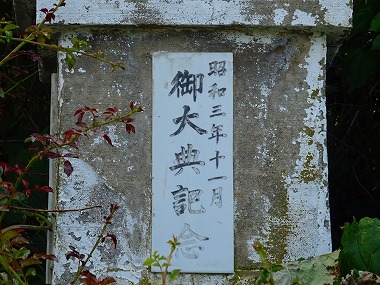 昭和三年十一月
御大典記念